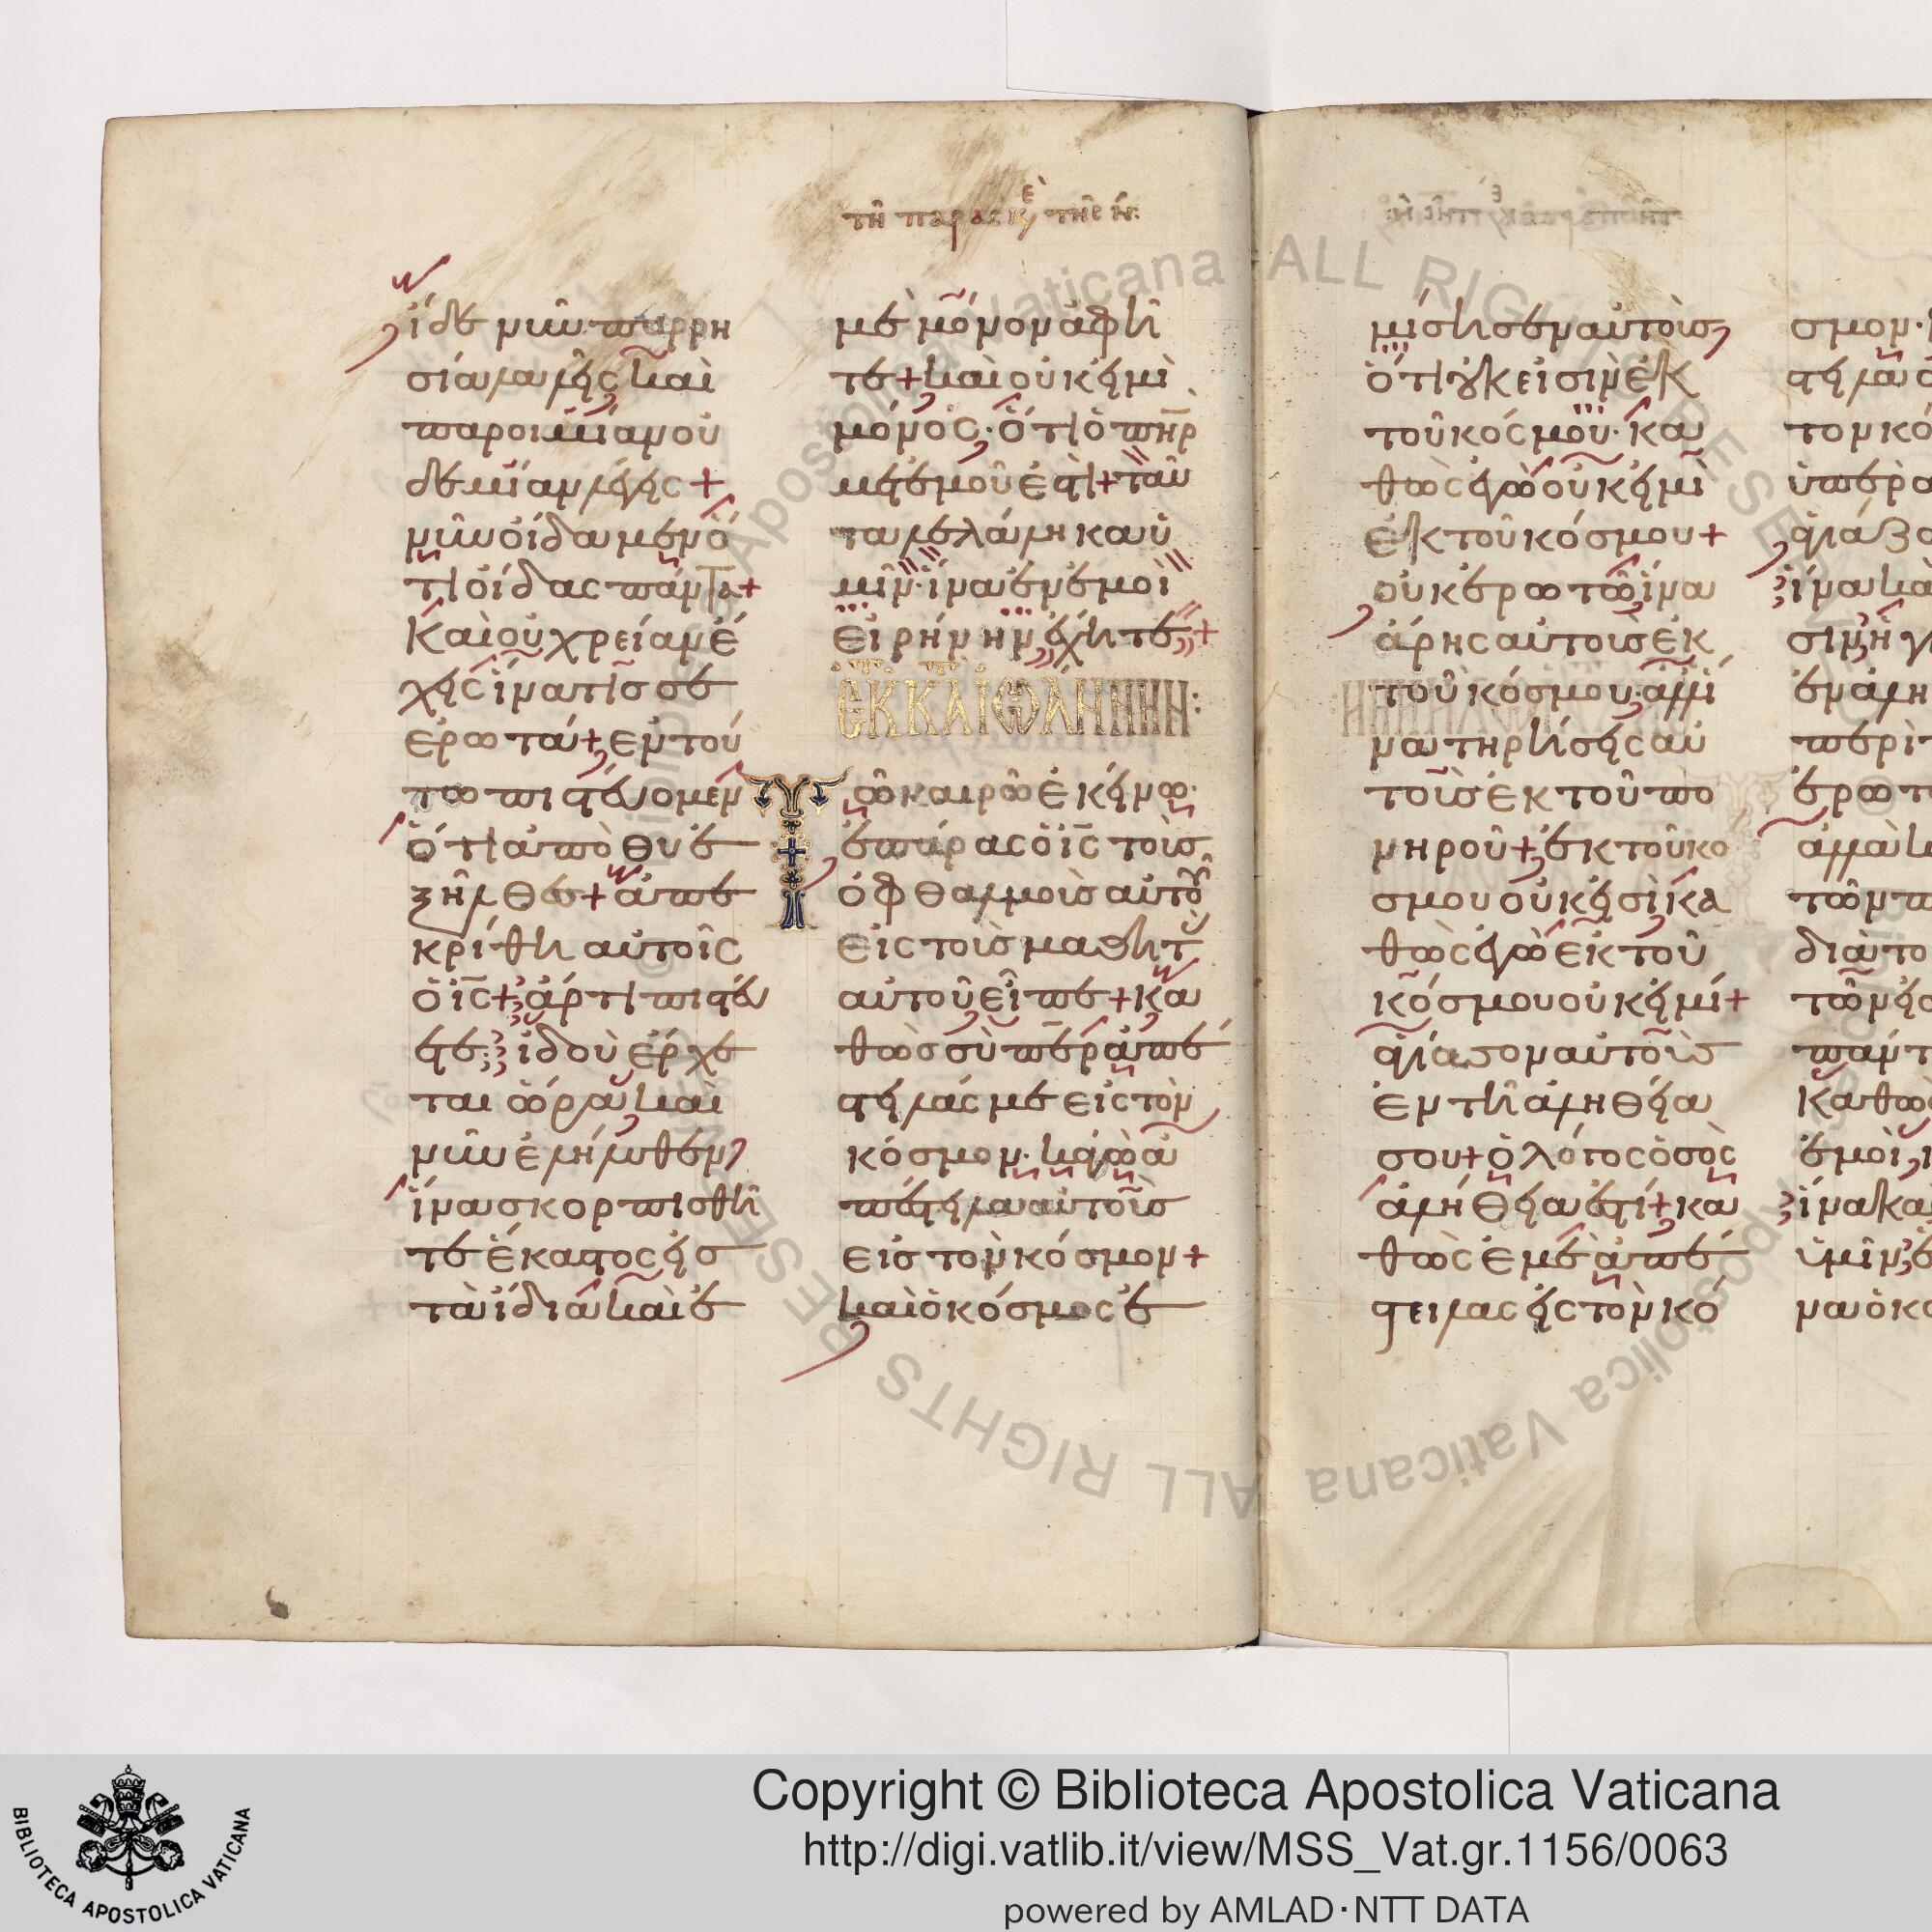 τῆ παρασκε τῆς ν:
ἴδε νῦν· παρρη
σία λαλεῖς καὶ
παροιμίαν οὐ
δεμίαν λέγεις +
νῦν οἴδαμεν ὅ
τι οἶδας πάντα +
καὶ οὐ χρείαν ἔ
χεις ἵνα τίς σε
ἐρωτᾶ + ἐν τού
τω πιστεύομεν
ὅτι ἀπὸ θυ ἐ
ξῆλθες + ἀπε
κρίθη αὐτοῖς
ὁ ις + ἄρτι πιστεύ
ετε· ἰδοὺ ἔρχε
ται ὥρα καὶ
νῦν ἐλήλυθεν
ἵνα σκορπισθῆ
τε ἕκαστος εἰς
τὰ ἴδια καὶ ἐ
μὲ μόνον ἀφῆ
τε + καὶ οὐκ εἰμὶ
μόνος· ὅτι ὁ πηρ
μετ ἐμοῦ ἐστι + ταῦ
τα λελάληκα ὑ
μῖν· ἵνα ἐν ἐμοὶ
εἰρήνην ἔχητε +
ΕΚ Κ ΑΙΩΛΗΝΗΝ:
Τῶ καιρῶ ἐκείνω·
ἐπάρας ὁ ις τοὺς
ὀφθαλμοὺς αὐτοῦ
εἰς τοὺς μαθητ
αὐτοῦ εἶπε + κα
θὼς σὺ περ ἀπέ
στειλάς με εἰς τὸν
κόσμον· καγὼ ἀ
πέστειλα αὐτοὺς
εἰς τὸν κόσμον +
καὶ ὁ κόσμος ἐ
μίσησεν αὐτοὺς
ὅτι οὐκ εἰσὶν ἐκ
τοῦ κόσμου· κα
θὼς ἐγὼ οὐκ εἰμὶ
ἐκ τοῦ κόσμου +
οὐκ ἐρωτῶ ἵνα
ἄρης αὐτοὺς ἐκ
τοῦ κόσμου· ἀλλ ἵ
να τηρήσης αὐ
τοὺς ἐκ τοῦ πο
νηροῦ + ἐκ τοῦ κό
σμου οὐκ εἰσὶ κα
θὼς ἐγὼ ἐκ τοῦ
κόσμου οὐκ εἰμί +
ἁγίασον αὐτοὺς
ἐν τῆ ἀληθεία
σου + ὁ λόγος ὁ σὸς
ἀλήθεια ἐστί + κα
θὼς ἐμὲ ἀπέ
στειλας εἰς τὸν κό
σμον·
Copyright © Biblioteca Apostolica Vaticana
http://digi.vatlib.it/view/MSS_Vat.gr.1156/0063
powered by AMLAD·NTT DATA
BIBLIOTECA APOSTOLICA VATICANA